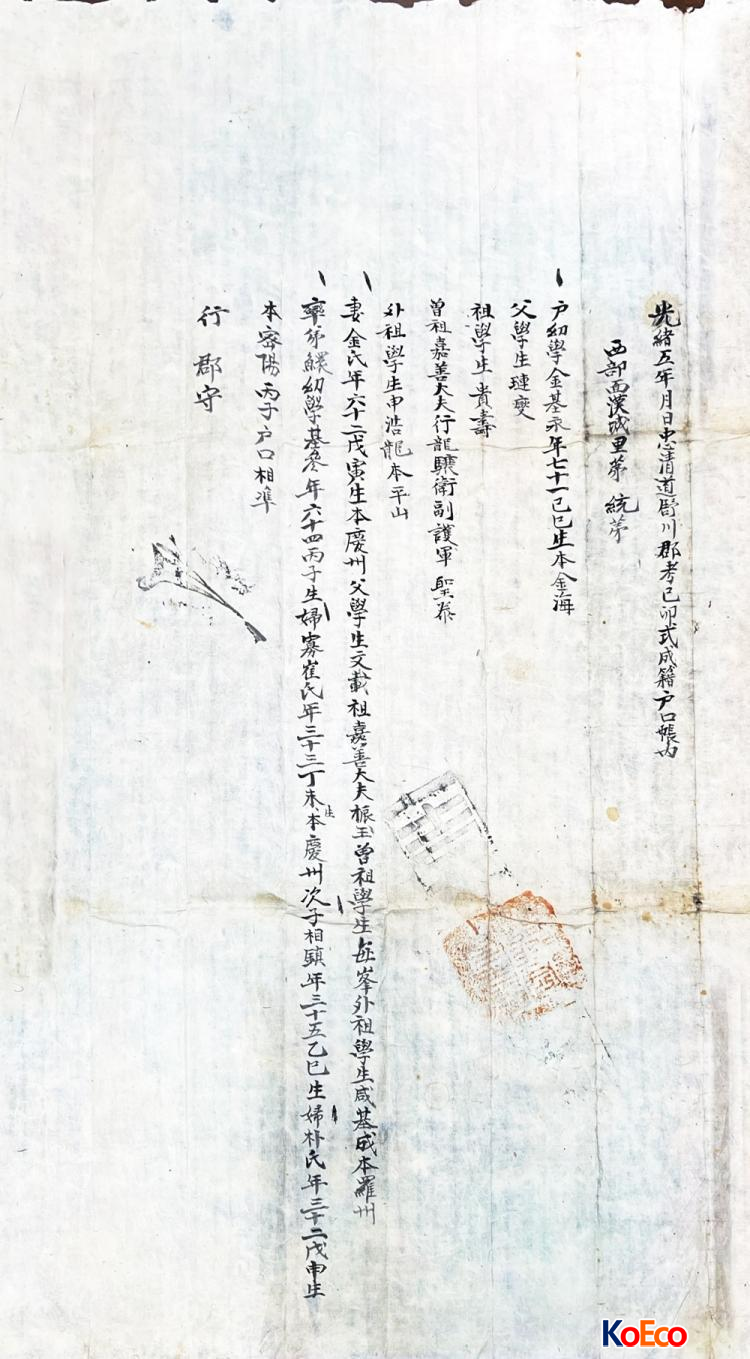 光緒五年月日忠清道舒川郡考己卯式成籍戶口帳內
西部面漢城里第 統第
戶幼學金基永年七十一己巳生本金海
父學生璉燮
祖學生貴壽
曾祖嘉善大夫行龍驤衛副護軍聖泰
外祖學生申浩龍本平山
妻金氏年六十二戊寅生本慶州父學生文載祖嘉善大夫振玉曾祖學生每峯外祖學生咸基成本羅州
率弟鰥幼學基參年六十四丙子生婦寡崔氏年三十三丁未生本慶州次子相顯年三十五乙巳生婦朴氏年三十二戊申生
本密陽丙子戶口相準
行郡守
KoEco